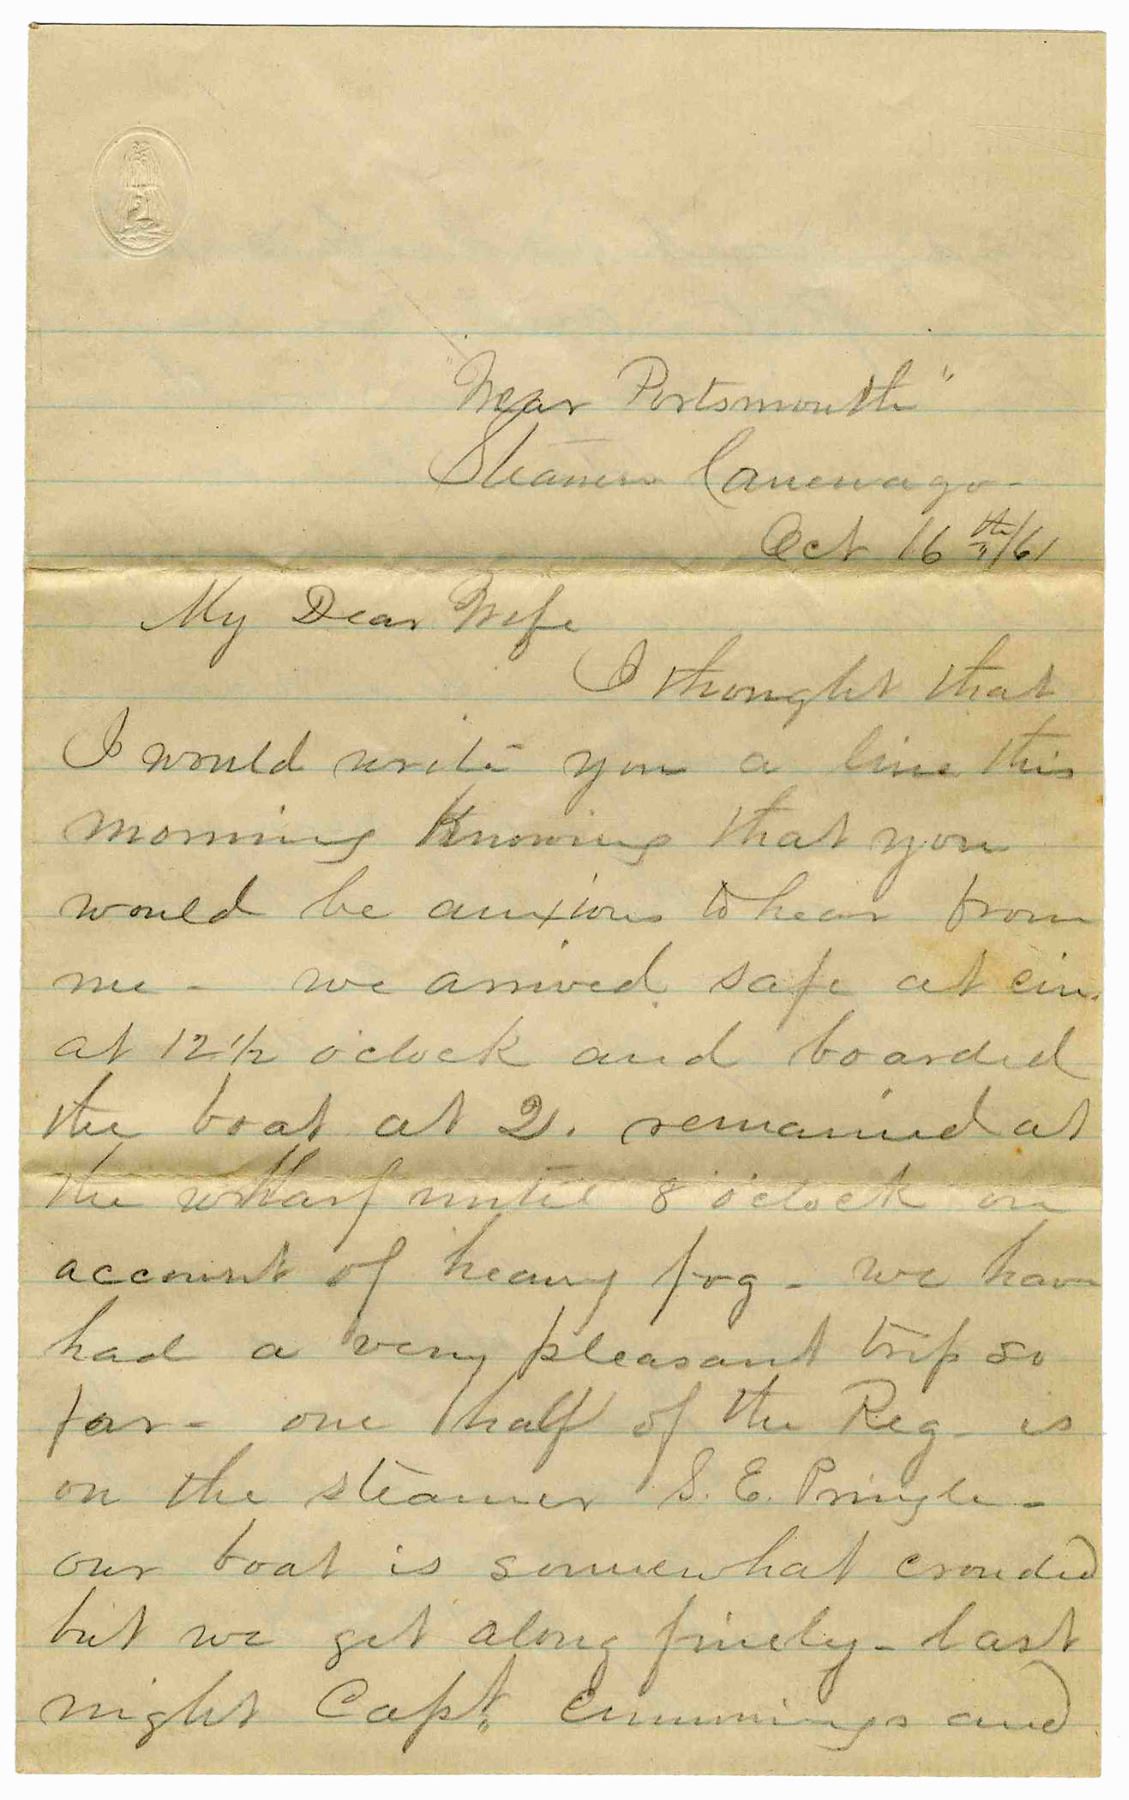 "Near Portsmouth"
Steamer Canewago -
Oct 16th/61
My Dear Wife
I thought that
I would write you a line this
morning Knowing that you
would be anxious to hear from
me - we arrived safe at cin.
at 12 1/2 o'clock and boarded
the boat at 2. remained at
the wharf until 8 o'clock on
account of heavy fog - we have
had a very pleasant trip so
far - one half of the Reg - is
on the steamer S. E. Pringle -
our boat is somewhat crouded
but we get along finely - last
night Capt. Cummings and